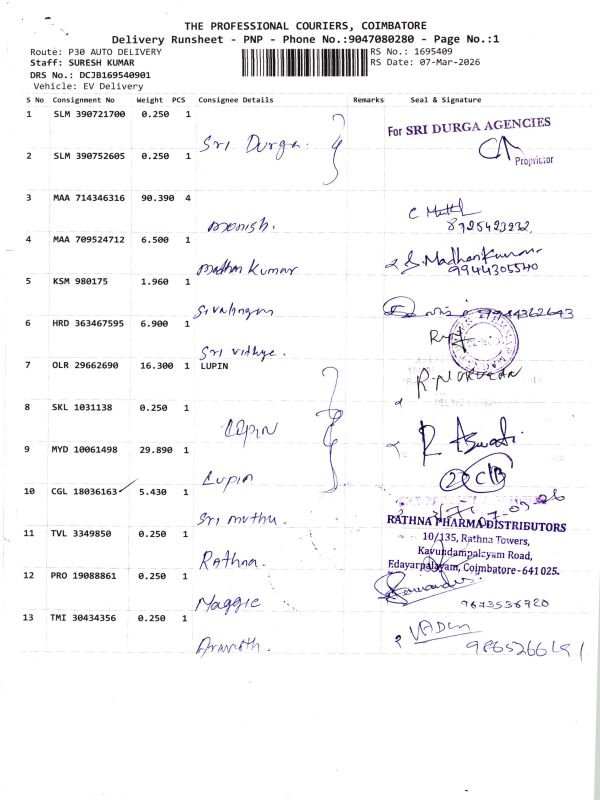 THE PROFESSIONAL COURIERS, COIMBATORE
Delivery Runsheet - PNP - Phone No.:9047080280 - Page No.:1
Route: P30 AUTO DELIVERY
RS No.: 1695409
Staff: SURESH KUMAR
RS Date: 07-Mar-2026
DRS No.: DCJB169540901
Vehicle: EV Delivery
S No Consignment No Weight PCS Consignee Details Remarks Seal & Signature
1 SLM 390721700 0.250 1
For SRI DURGA AGENCIES
Sri Durga.
2 SLM 390752605 0.250 1
Proprietor
3 MAA 714346316 90.390 4
monish.
8925423232.
4 MAA 709524712 6.500 1
Madhan Kumar
Madhan Kumar
9944305540
5 KSM 980175 1.960 1
Sivalingam
6 HRD 363467595 6.900 1
Sri Vidhye.
7 OLR 29662690 16.300 1 LUPIN
8 SKL 1031138 0.250 1
Lupin
R Aswati
9 MYD 10061498 29.890 1
Lupin
10 CGL 18036163 5.430 1
Sri muthu.
RATHNA PHARMA DISTRIBUTORS
11 TVL 3349850 0.250 1
10/135, Rathna Towers,
Kavundampalayam Road,
Rathna.
Edayarpalayam, Coimbatore - 641 025.
12 PRO 19088861 0.250 1
Maggie
9673536920
13 TMI 30434356 0.250 1
Aravoth.